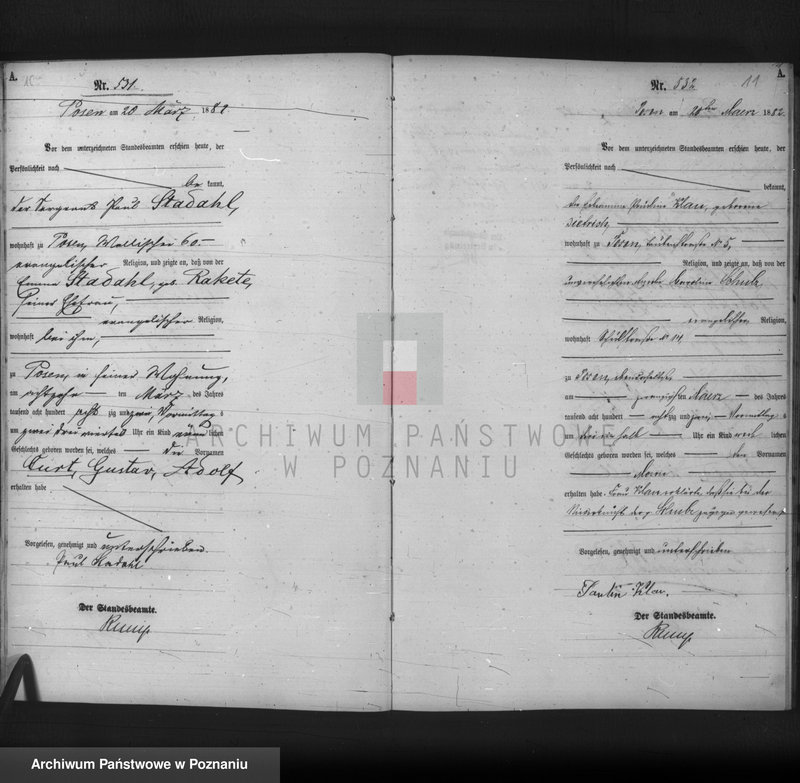 A.
Nr. 531.
Posen am 20 März 1882
Vor dem unterzeichneten Standesbeamten erschien heute, der
Persönlichkeit nach
be kannt,
der Sergeant Paul Stadahl,
wohnhaft zu Posen, Wallischei 60
evangelischer Religion, und zeigte an, daß von der
Emma Stadahl, geb. Rakete,
seiner Ehefrau,
evangelischer Religion,
wohnhaft bei ihm,
zu Posen, in seiner Wohnung,
am achtzehn ten März des Jahres
tausend acht hundert acht zig und zwei Vormittag s
um zwei drei viertel Uhr ein Kind männ lichen
Geschlechts geboren worden sei, welches die Vornamen
Curt, Gustav, Adolf
erhalten habe
Vorgelesen, genehmigt und unterschrieben.
Paul Stadahl
Der Standesbeamte.
A.
Nr. 532
11
Posen am 20ten Maerz 1882.
Vor dem unterzeichneten Standesbeamten erschien heute, der
Persönlichkeit nach
bekannt,
die Hebamme Klau, geborene
Dietrich,
wohnhaft zu Posen, № 5,
Religion, und zeigte an, daß von der
unverehelichten Schulz
evangelischer Religion,
wohnhaft Schulstrasse № 14
zu Posen,
am zwanzigsten Maerz des Jahres
tausend acht hundert achtzig und zwei Vormittag s
um Uhr ein Kind weib lichen
Geschlechts geboren worden sei, welches den Vornamen
erhalten habe. Frau Klau erklärte, daß sie bei der
Niederkunft der p. Schulz zugegen gewesen sei
Vorgelesen, genehmigt und unterschrieben
Der Standesbeamte.
ARCHIWUM PAŃSTWOWE
W POZNANIU
Archiwum Państwowe w Poznaniu